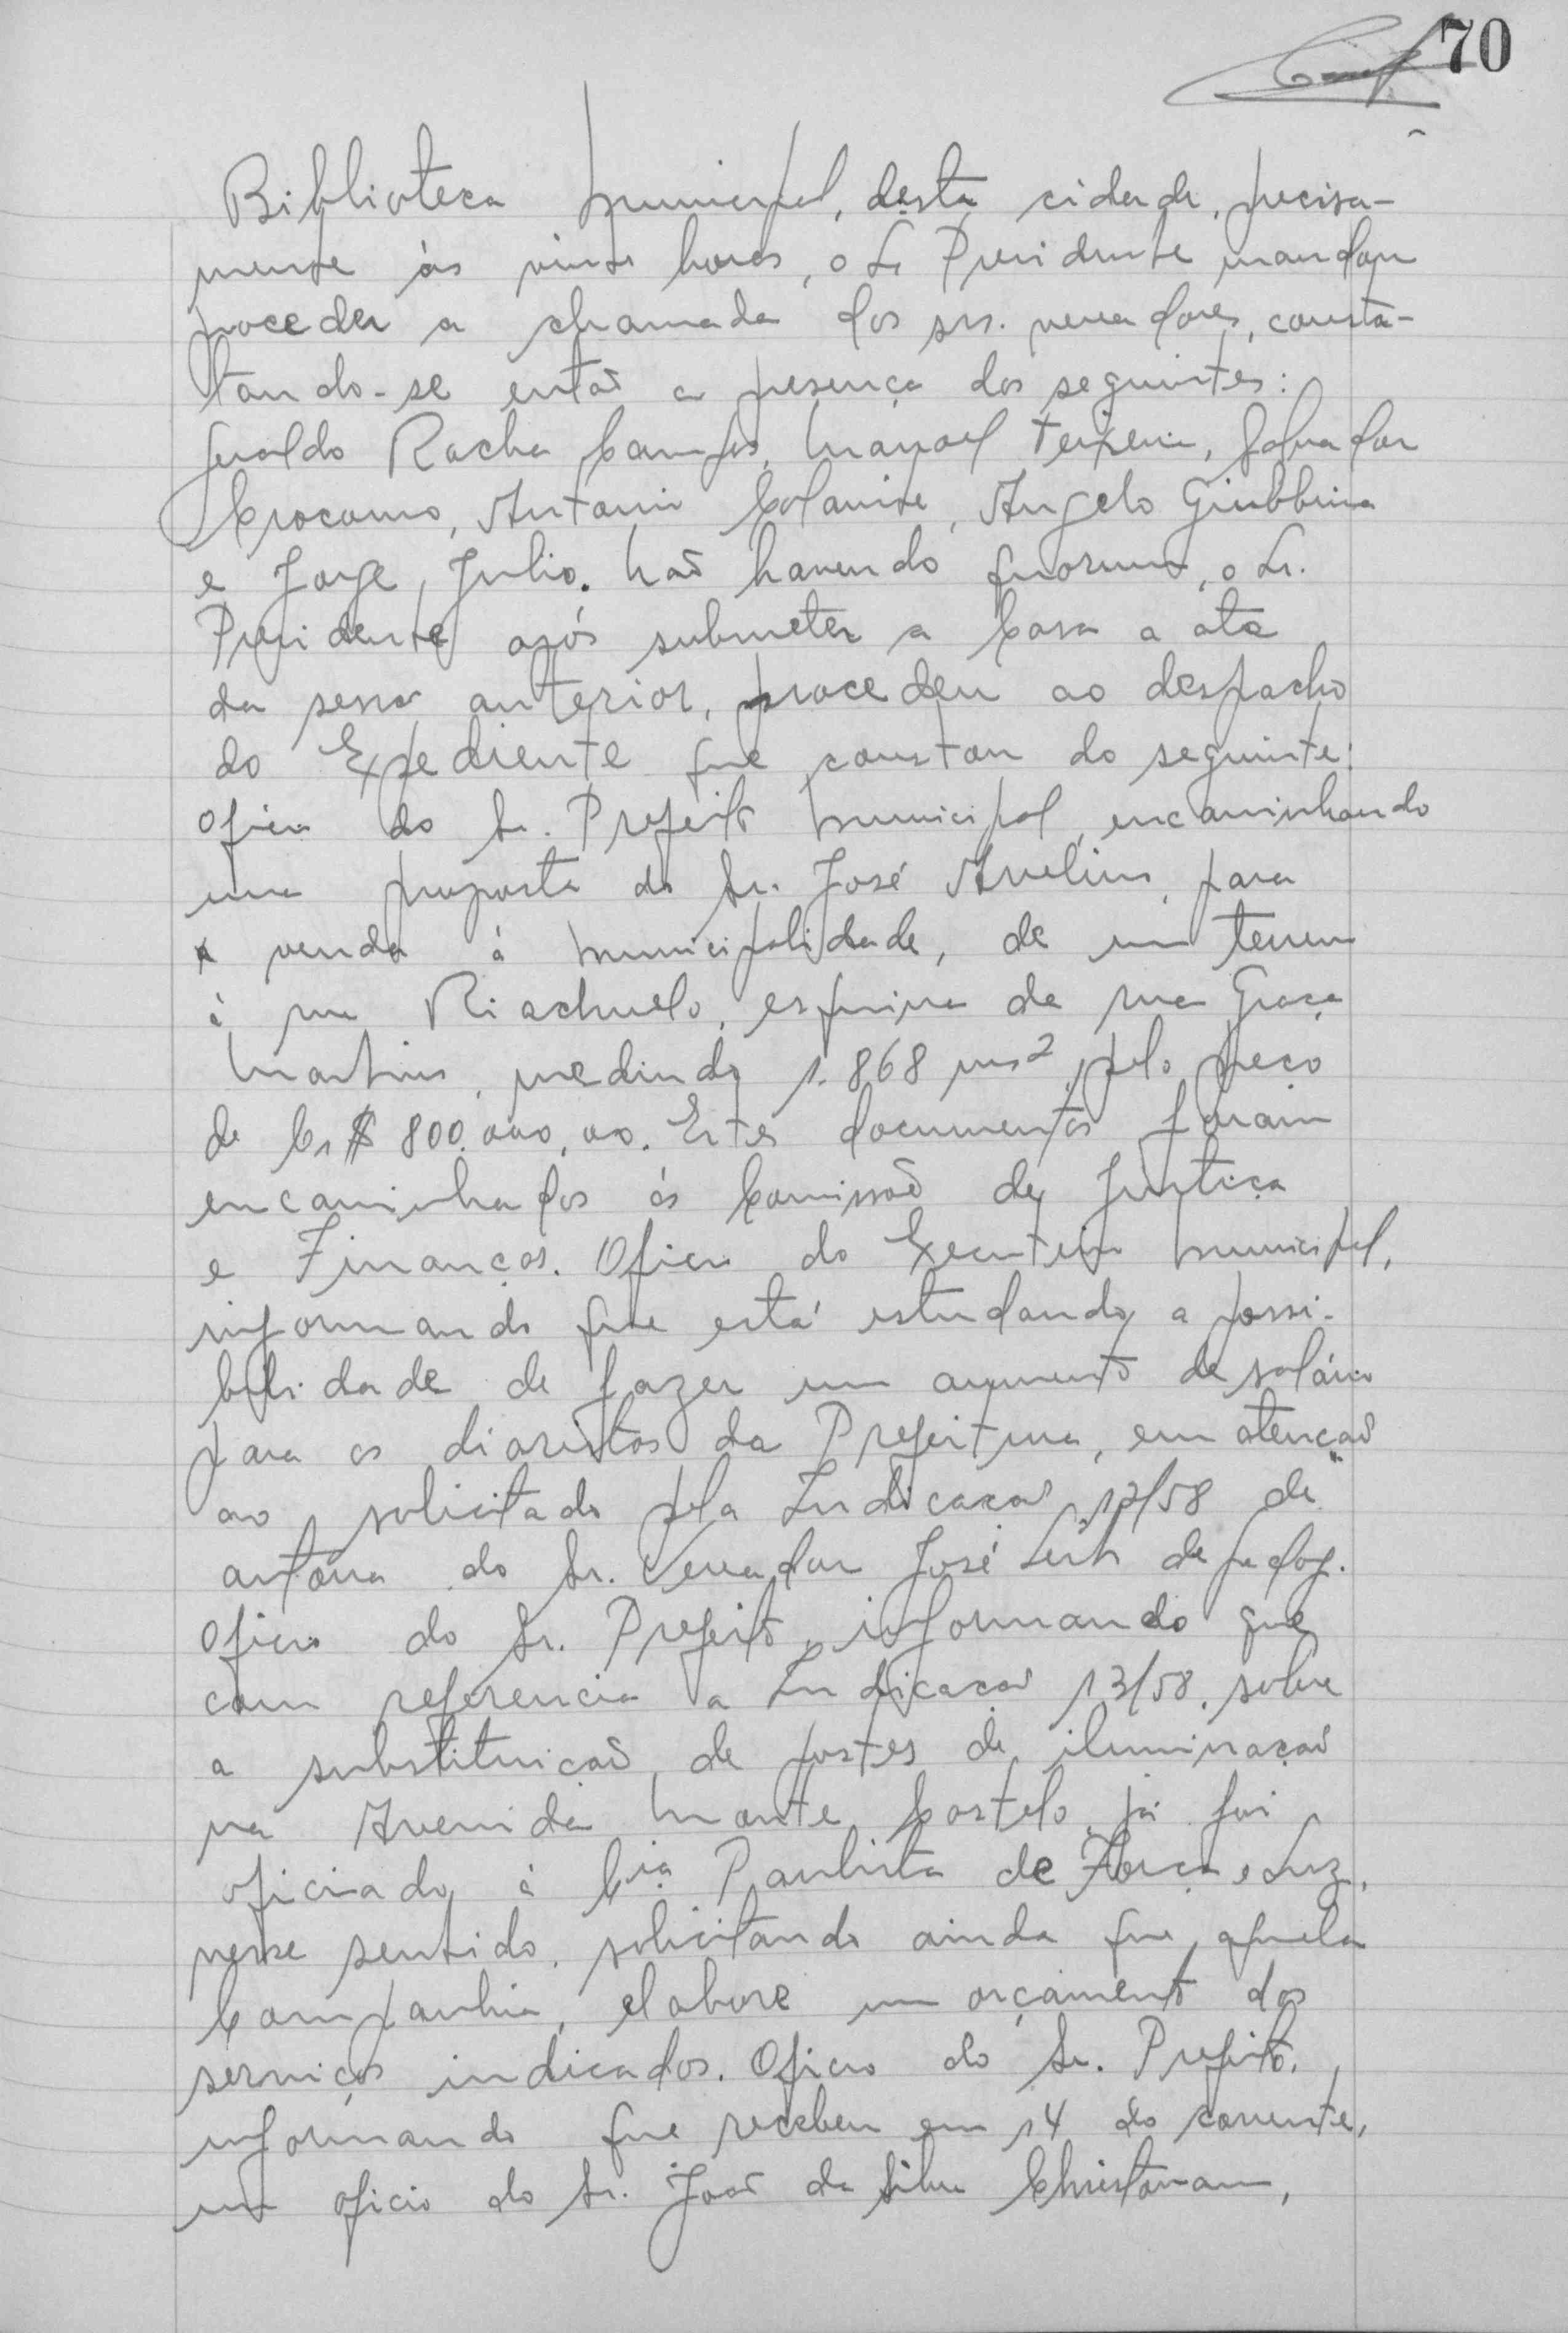 70
Biblioteca Municipal, desta cidade, precisa-
mente às vinte horas, o Sr. Presidente mandou
proceder a chamada dos srs. vereadores, consta-
tando-se então a presença dos seguintes:
Geraldo Rocha Campos, Manoel Teixeira, Salvador
Crocomo, Antonio Colamire, Angelo Giubbina
e Jorge Julio. Não havendo quorum, o Sr.
Presidente após submeter a Casa a ata
da sessão anterior, procedeu ao despacho
do Expediente que constou do seguinte:
Oficio do Sr. Prefeito Municipal, encaminhando
uma proposta do Sr. José Avelino, para
a venda á Municipalidade, de um terreno
á rua Riachuelo, esquina de rua Graça
Martins, medindo 1.868 ms2, pelo preço
de Cr$ 800.000,00. Estes documentos foram
encaminhados ás Comissão de Justiça
e Finanças. Oficio do Executivo Municipal,
informando que está estudando a possi-
bilidade de fazer um aumento de salário
para os diaristas da Prefeitura, em atenção
ao solicitado pela Indicação 12/58 de
autoria do Sr. Vereador José de Godoy.
Oficio do Sr. Prefeito, informando que
com referencia a Indicação 13/58, sobre
a substituição de postes de iluminação
na Avenida Monte Castelo, já foi
oficiado á Cia Paulista de Força e Luz,
nesse sentido, solicitando ainda que aquela
Companhia, elabore um orçamento dos
serviços indicados. Oficio do Sr. Prefeito,
informando que recebeu em 14 do corrente,
um oficio do Sr. João da Silva Christovam,